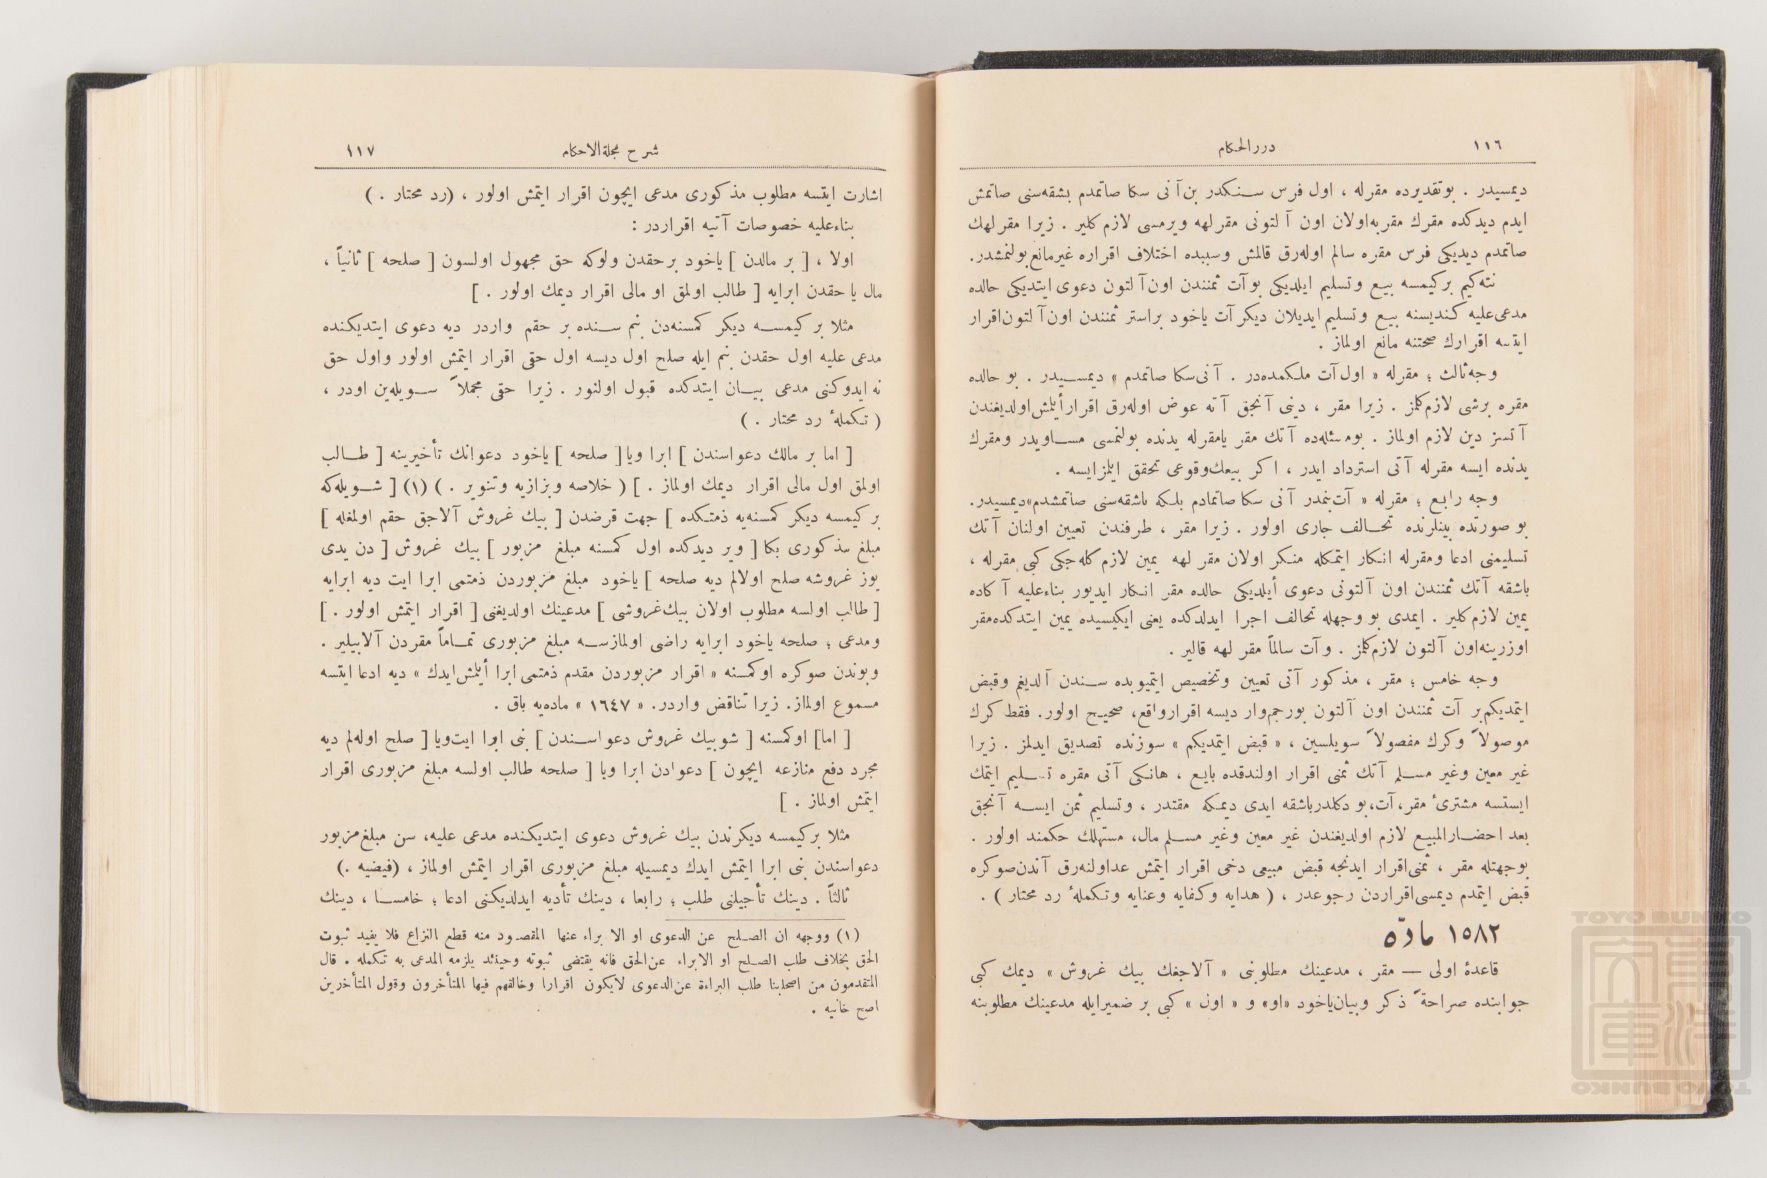 ١١٦
درر الحكام
ديمسيدر . بوتقديرده مقرله ، اول فرس سنكدر بن آنى سكا صاتمدم بشقه‌سنى صاتمش
ايدم ديدكده مقرك مقربه‌اولان اون آلتونى مقرلهه ويرمسى لازم كلير . زيرا مقر لهك
صاتمدم ديديكى فرس مقره سالم اوله‌رق قالمش وسببده اختلاف اقراره غيرمانع بولنمشدر.
نته‌كيم بركيمسه بيع وتسليم ايلديكى بو آت ثمنندن اون آلتون دعوى ايتديكى حالده
مدعى‌عليه كنديسنه بيع وتسليم ايديلان ديكر آت ياخود براستر ثمنندن اون آلتون‌اقرار
ايتسه اقرارك صحتنه مانع اولماز .
وجه‌ثالث ؛ مقرله « اول آت ملكمده‌در . آنى‌سكا صاتمدم » ديمسيدر . بو حالده
مقره برشى لازم‌كلمز . زيرا مقر ، دينى آنجق آته عوض اوله‌رق اقرارأيلمش‌اولديغندن
آتسز دين لازم اولماز . بومسئله‌ده آتك مقر يامقرله يدنده بولنمسى مساويدر ومقرك
يدنده ايسه مقرله آتى استرداد ايدر ، اكر بيعك‌وقوعى تحقق ايلمزايسه .
وجه رابع ؛ مقرله « آت‌بمدر آنى سكا صاتمادم بلكه باشقه‌سنى صاتمشدم»ديمسيدر.
بو صورتده بينلرنده تحالف جارى اولور . زيرا مقر ، طرفندن تعيين اولنان آتك
تسليمنى ادعا ومقرله انكار ايتمكله منكر اولان مقر لهه يمين لازم كله‌جكى كبى مقرله ،
باشقه آتك ثمنندن اون آلتونى دعوى أيلديكى حالده مقر انكار ايديور بناءعليه آ كاده
يمين لازم‌كلير . ايمدى بو وجهله تحالف اجرا ايدلدكده يعنى ايكيسيده يمين ايتدكده‌مقر
اوزرينه‌اون آلتون لازم‌كلمز . وآت سالماً مقر لهه قالير .
وجه خامس ؛ مقر ، مذكور آتى تعيين وتخصيص ايتميوبده سندن آلديغم وقبض
ايتمديكم‌بر آت ثمنندن اون آلتون بورجم‌وار ديسه اقرارواقع، صحيح اولور. فقط كرك
موصولاً وكرك مفصولاً سويلسين ، « قبض ايتمديكم » سوزنده تصديق ايدلمز . زيرا
غير معين وغير مسلم آتك ثمنى اقرار اولندقده بايع ، هانكى آتى مقره تسليم ايتمك
ايستسه مشترئ مقر،آت،بودكلدرباشقه ايدى ديمكه مقتدر ، وتسليم ثمن ايسه آنجق
بعد احضارالمبيع لازم اولديغندن غير معين وغير مسلم مال، مستهلك حكمند اولور .
بوجهتله مقر ، ثمنى‌اقرار ايدنجه قبض مبيعى دخى اقرار ايتمش عداولنه‌رق آندن‌صوكره
قبض ايتمدم ديمسى‌اقراردن رجوعدر ، ( هدايه وكفايه وعنايه وتكملهٔ رد محتار ) .
١٥٨٢ مادّه
قاعدهٔ اولى — مقر ، مدعينك مطلوبنى « آلاجغك بيك غروش » ديمك كبى
جوابنده صراحةً ذكر وبيان‌ياخود «او» و « اون » كبى بر ضميرايله مدعينك مطلوبنه
شرح مجلة الاحكام
١١٧
اشارت ايتسه مطلوب مذكورى مدعى ايچون اقرار ايتمش اولور ، (رد محتار . )
بناءعليه خصوصات آتيه اقراردر :
اولا ، [ بر مالدن ] ياخود برحقدن ولوكه حق مجهول اولسون [ صلحه ] ثانياً ،
مال يا حقدن ابرايه [ طالب اولمق او مالى اقرار ديمك اولور . ]
مثلا بر كيمسه ديكر كمسنه‌دن بنم سنده بر حقم واردر ديه دعوى ايتديكنده
مدعى عليه اول حقدن بنم ايله صلح اول ديسه اول حقى اقرار ايتمش اولور واول حق
نه ايدوكنى مدعى بيان ايتدكده قبول اولنور . زيرا حقى مجملاً سويله‌ين اودر ،
( تكملهٔ رد محتار . )
[ اما بر مالك دعواسندن ] ابرا ويا [ صلحه ] ياخود دعوانك تأخيرينه [ طالب
اولمق اول مالى اقرار ديمك اولماز . ] ( خلاصه وبزازيه وتنوير . ) (١) [ شويله‌كه
بر كيمسه ديكر كمسنه‌يه ذمتكده ] جهت قرضدن [ بيك غروش آلاجق حقم اولمغله ]
مبلغ مذكورى بكا [ وير ديدكده اول كمسنه مبلغ مزبور ] بيك غروش [ دن يدى
يوز غروشه صلح اولالم ديه صلحه ] ياخود مبلغ مزبوردن ذمتمى ابرا ايت ديه ابرايه
[ طالب اولسه مطلوب اولان بيك‌غروشى ] مدعينك اولديغنى [ اقرار ايتمش اولور . ]
ومدعى ؛ صلحه ياخود ابرايه راضى اولمازسه مبلغ مزبورى تماماً مقردن آلابيلير .
وبوندن صوكره اوكمسنه « اقرار مزبوردن مقدم ذمتمى ابرا أيلمش‌ايدك » ديه ادعا ايتسه
مسموع اولماز. زيرا تناقض واردر. « ١٦٤٧ » ماده‌يه باق .
[ اما] اوكمسنه [ شوبيك غروش دعواسندن ] بنى ابرا ايت‌ويا [ صلح اوله‌لم ديه
مجرد دفع منازعه ايچون ] دعوادن ابرا ويا [ صلحه طالب اولسه مبلغ مزبورى اقرار
ايتمش اولماز . ]
مثلا بركيمسه ديكرندن بيك غروش دعوى ايتديكنده مدعى عليه، سن مبلغ‌مزبور
دعواسندن بنى ابرا ايتمش ايدك ديمسيله مبلغ مزبورى اقرار ايتمش اولماز ، (فيضيه .)
ثالثاً . دينك تأجيلنى طلب ؛ رابعا ، دينك تأديه ايدلديكنى ادعا ؛ خامسا ، دينك
(١) ووجهه ان الصلح عن الدعوى او الا براء عنها المقصود منه قطع النزاع فلا يفيد ثبوت
الحق بخلاف طلب الصلح او الابراء عن‌الحق فانه يقتضى ثبوته وحينئذ يلزمه المدعى به تكمله . قال
المتقدمون من اصحابنا طلب البراءة عن‌الدعوى لايكون اقرارا وخالفهم فيها المتأخرون وقول المتأخرين
اصح خانيه .
TOYO BUNKO